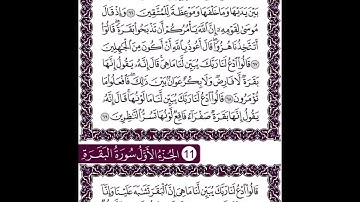 بَيْنَ يَدَيْهَا وَمَا خَلْفَهَا وَمَوْعِظَةً لِّلْمُتَّقِينَ ﴿٦٦﴾ وَإِذْ قَالَ
مُوسَىٰ لِقَوْمِهِۦٓ إِنَّ ٱللَّهَ يَأْمُرُكُمْ أَن تَذْبَحُوا۟ بَقَرَةً ۖ قَالُوٓا۟
أَتَتَّخِذُنَا هُزُوًا ۖ قَالَ أَعُوذُ بِٱللَّهِ أَنْ أَكُونَ مِنَ ٱلْجَـٰهِلِينَ
﴿٦٧﴾ قَالُوا۟ ٱدْعُ لَنَا رَبَّكَ يُبَيِّن لَّنَا مَا هِىَ ۚ قَالَ إِنَّهُۥ يَقُولُ إِنَّهَا
بَقَرَةٌ لَّا فَارِضٌ وَلَا بِكْرٌ عَوَانٌۢ بَيْنَ ذَٰلِكَ ۖ فَٱفْعَلُوا۟ مَا
تُؤْمَرُونَ ﴿٦٨﴾ قَالُوا۟ ٱدْعُ لَنَا رَبَّكَ يُبَيِّن لَّنَا مَا لَوْنُهَا ۚ قَالَ إِنَّهُۥ
يَقُولُ إِنَّهَا بَقَرَةٌ صَفْرَآءُ فَاقِعٌ لَّوْنُهَا تَسُرُّ ٱلنَّـٰظِرِينَ ﴿٦٩﴾
الجُزْءُ الأَوَّلُ 11 سُورَةُ البَقَرَةِ
قَالُوا۟ ٱدْعُ لَنَا رَبَّكَ يُبَيِّن لَّنَا مَا هِىَ إِنَّ ٱلْبَقَرَ تَشَـٰبَهَ عَلَيْنَا وَإِنَّآ